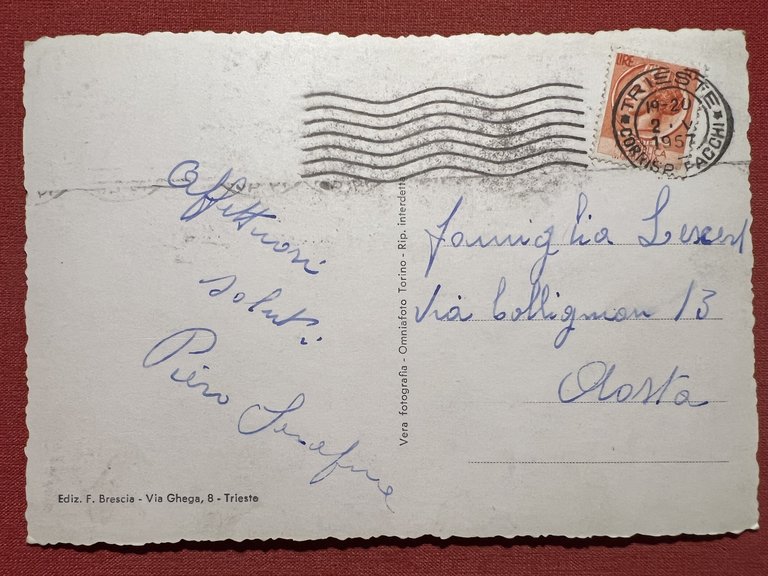 LIRE
TRIESTE
19-20
2 . V
1957
CORRISP. PACCHI
Affettuosi
saluti
Piero Serafine
Vera fotografia - Omniafoto Torino - Rip. interdetta
famiglia
Via Collignon 13
Aosta
Ediz. F. Brescia - Via Ghega, 8 - Trieste